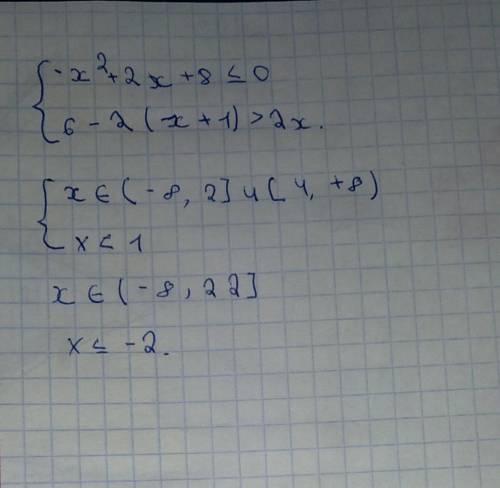 {-x²+2x+8≤0
{6-2(x+1)>2x.
{x∈(-8,2]u[4,+8)
{x<1
x∈(-8,22]
x≤-2.